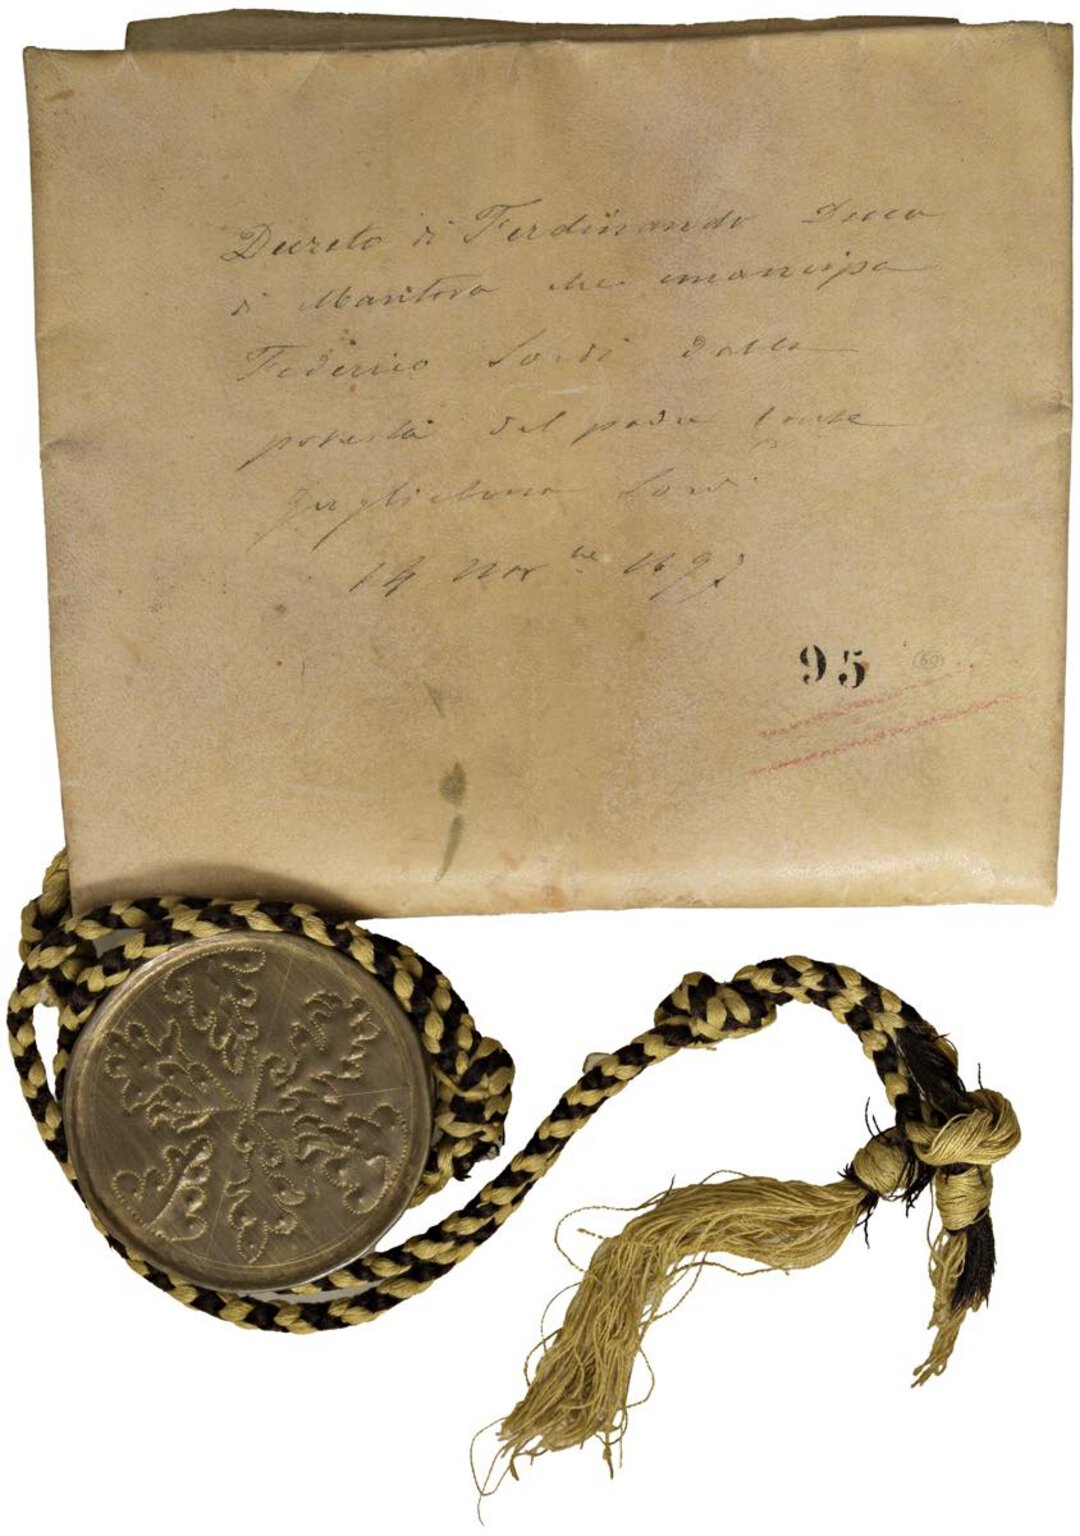 Decreto di Ferdinando Duca
di Mantova che emancipa
Federico Sordi dalla
potestà del padre Conte
Guglielmo Sordi
14 Nov.bre 169
95
60